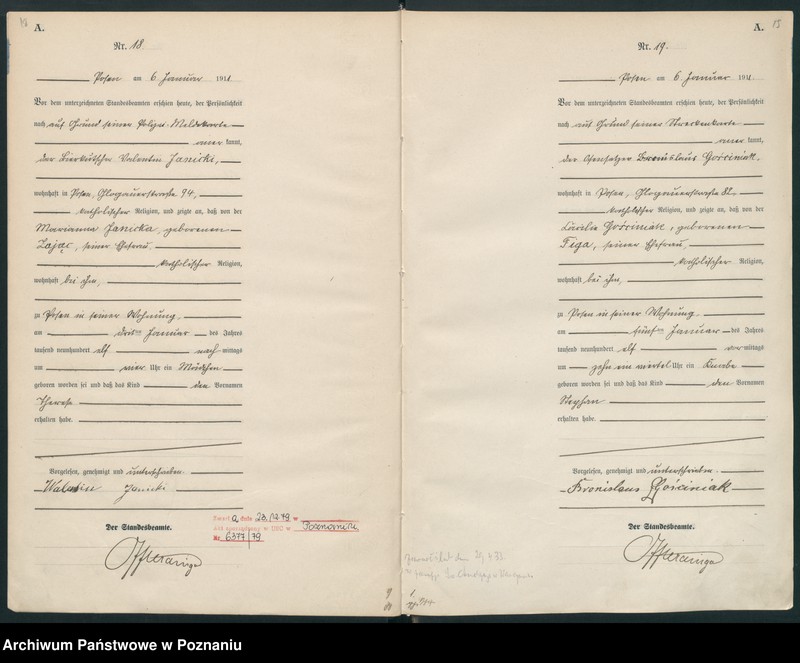 A.
Nr. 18
Posen am 6. Januar 1911
Vor dem unterzeichneten Standesbeamten erschien heute, der Persönlichkeit
nach auf Grund seiner Polizei-Meldekarte
anerkannt,
der Bierkutscher Valentin Janicki,
wohnhaft in Posen, Glogauerstraße 94,
katholischer Religion, und zeigte an, daß von der
Marianna Janicka, geborenen
Zając, seiner Ehefrau
katholischer Religion,
wohnhaft bei ihm,
zu Posen in seiner Wohnung,
am dritten Januar des Jahres
tausend neunhundert elf nachmittags
um vier Uhr ein Mädchen
geboren worden sei und daß das Kind den Vornamen
Therese
erhalten habe.
Vorgelesen, genehmigt und unterschrieben.
Janicki
Der Standesbeamte.
dnia 28/12 79
Nr 6377/79
15
A.
Nr. 19.
Posen am 6. Januar 1911
Vor dem unterzeichneten Standesbeamten erschien heute, der Persönlichkeit
nach auf Grund seiner Streckenkarte
anerkannt,
der Ofensetzer Bronislaus Gościniak,
wohnhaft in Posen, Glogauerstraße 82
katholischer Religion, und zeigte an, daß von der
Cäcilie Gościniak, geborenen
Figa, seiner Ehefrau,
katholischer Religion,
wohnhaft bei ihm,
zu Posen in seiner Wohnung
am fünften Januar des Jahres
tausend neunhundert elf vormittags
um zehn ein viertel Uhr ein Knabe
geboren worden sei und daß das Kind den Vornamen
Stephan
erhalten habe.
Vorgelesen, genehmigt und unterschrieben.
Bronislaus Gościniak
Der Standesbeamte.
Archiwum Państwowe w Poznaniu